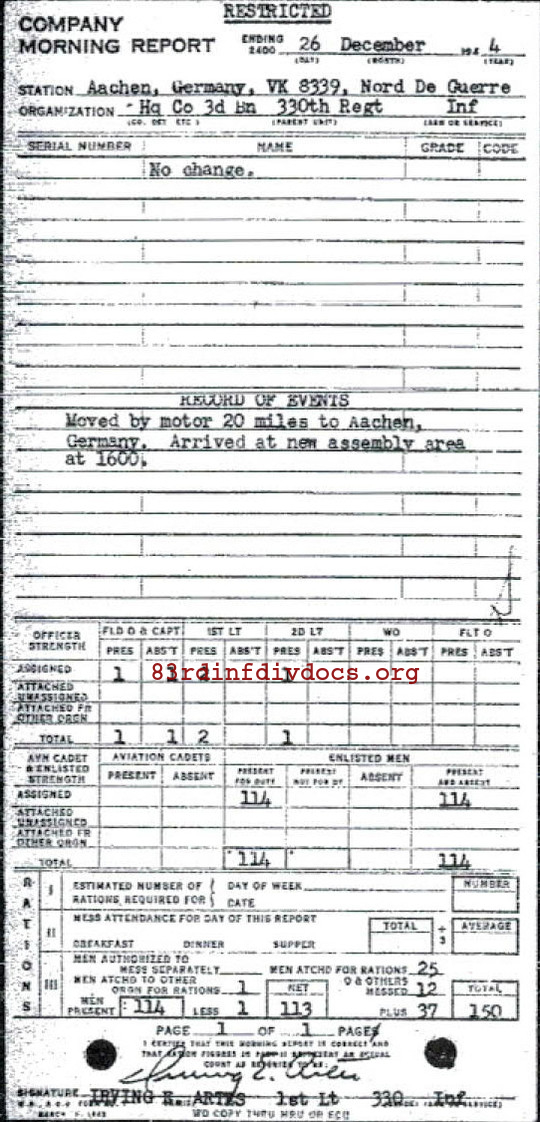 RESTRICTED
COMPANY
MORNING REPORT ENDING 2400 26 December 194 4
(DAY) (MONTH) (YEAR)
STATION Aachen, Germany, VK 8339, Nord De Guerre
ORGANIZATION Hq Co 3d Bn 330th Regt Inf
(CO. DET ETC) (PARENT UNIT) (ARM OR SERVICE)
SERIAL NUMBER NAME GRADE CODE
No change.
RECORD OF EVENTS
Moved by motor 20 miles to Aachen,
Germany. Arrived at new assembly area
at 1600.
OFFICER STRENGTH FLD O & CAPT 1ST LT 2D LT WO FLT O
PRES ABS'T PRES ABS'T PRES ABS'T PRES ABS'T PRES ABS'T
ASSIGNED 1 1 2 1
83rdinfdivdocs.org
ATTACHED UNASSIGNED
ATTACHED FR OTHER ORGN
TOTAL 1 1 2 1
AVN CADET & ENLISTED STRENGTH AVIATION CADETS ENLISTED MEN
PRESENT ABSENT PRESENT FOR DUTY PRESENT NOT FOR DY ABSENT PRESENT AND ABSENT
ASSIGNED 114 114
ATTACHED UNASSIGNED
ATTACHED FR OTHER ORGN
TOTAL 114 114
RATIONS
I ESTIMATED NUMBER OF RATIONS REQUIRED FOR DAY OF WEEK DATE NUMBER
II MESS ATTENDANCE FOR DAY OF THIS REPORT TOTAL ÷ 3 AVERAGE
BREAKFAST DINNER SUPPER
III MEN AUTHORIZED TO MESS SEPARATELY MEN ATCHD FOR RATIONS 25
MEN ATCHD TO OTHER ORGN FOR RATIONS 1 NET O & OTHERS MESSED 12 TOTAL
MEN PRESENT 114 LESS 1 113 PLUS 37 150
PAGE 1 OF 1 PAGES
I CERTIFY THAT THIS MORNING REPORT IS CORRECT AND
THAT RATION FIGURES IN PART II REPRESENT AN ACTUAL
COUNT AS REPORTED TO ME.
SIGNATURE IRVING E. ARTES 1st Lt 330 Inf